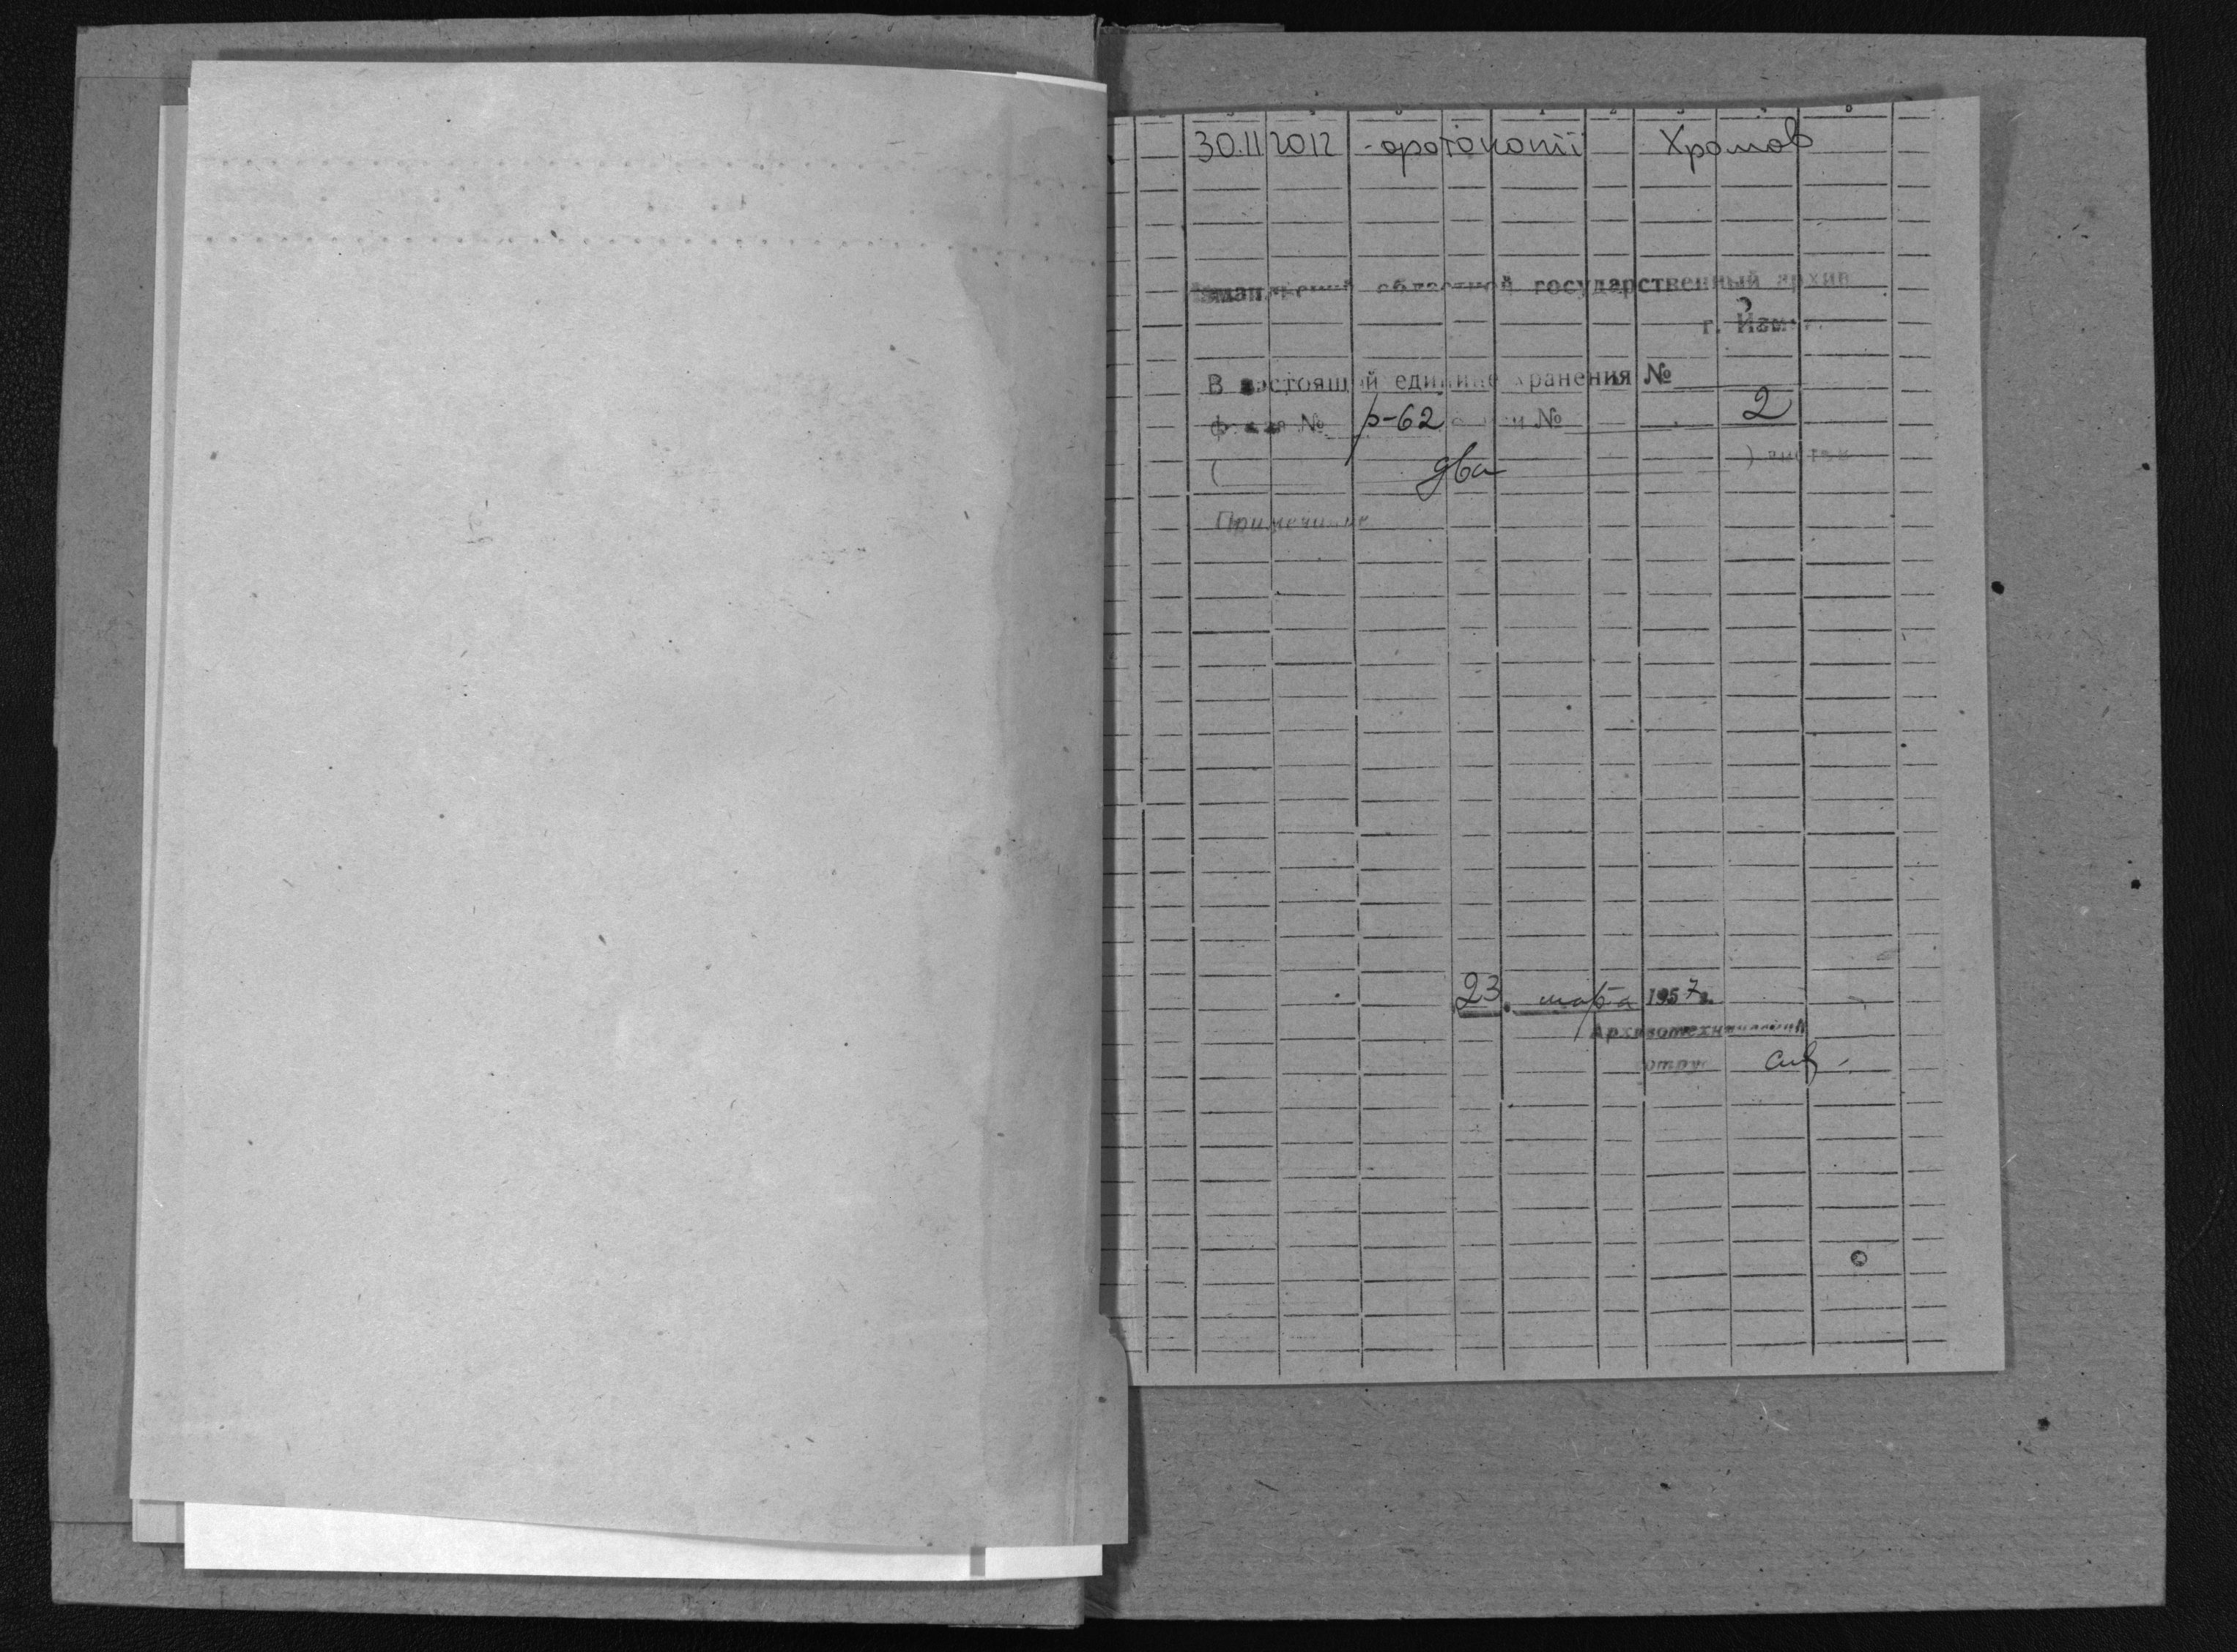 30.11 2012 - фотокопії Хромов
областной государственный архив
г.
В настоящей единице хранения №
фонда № р-62 описи № 2
( два ) листов
Примечание
23. марта 1957г.
Архивотехнический